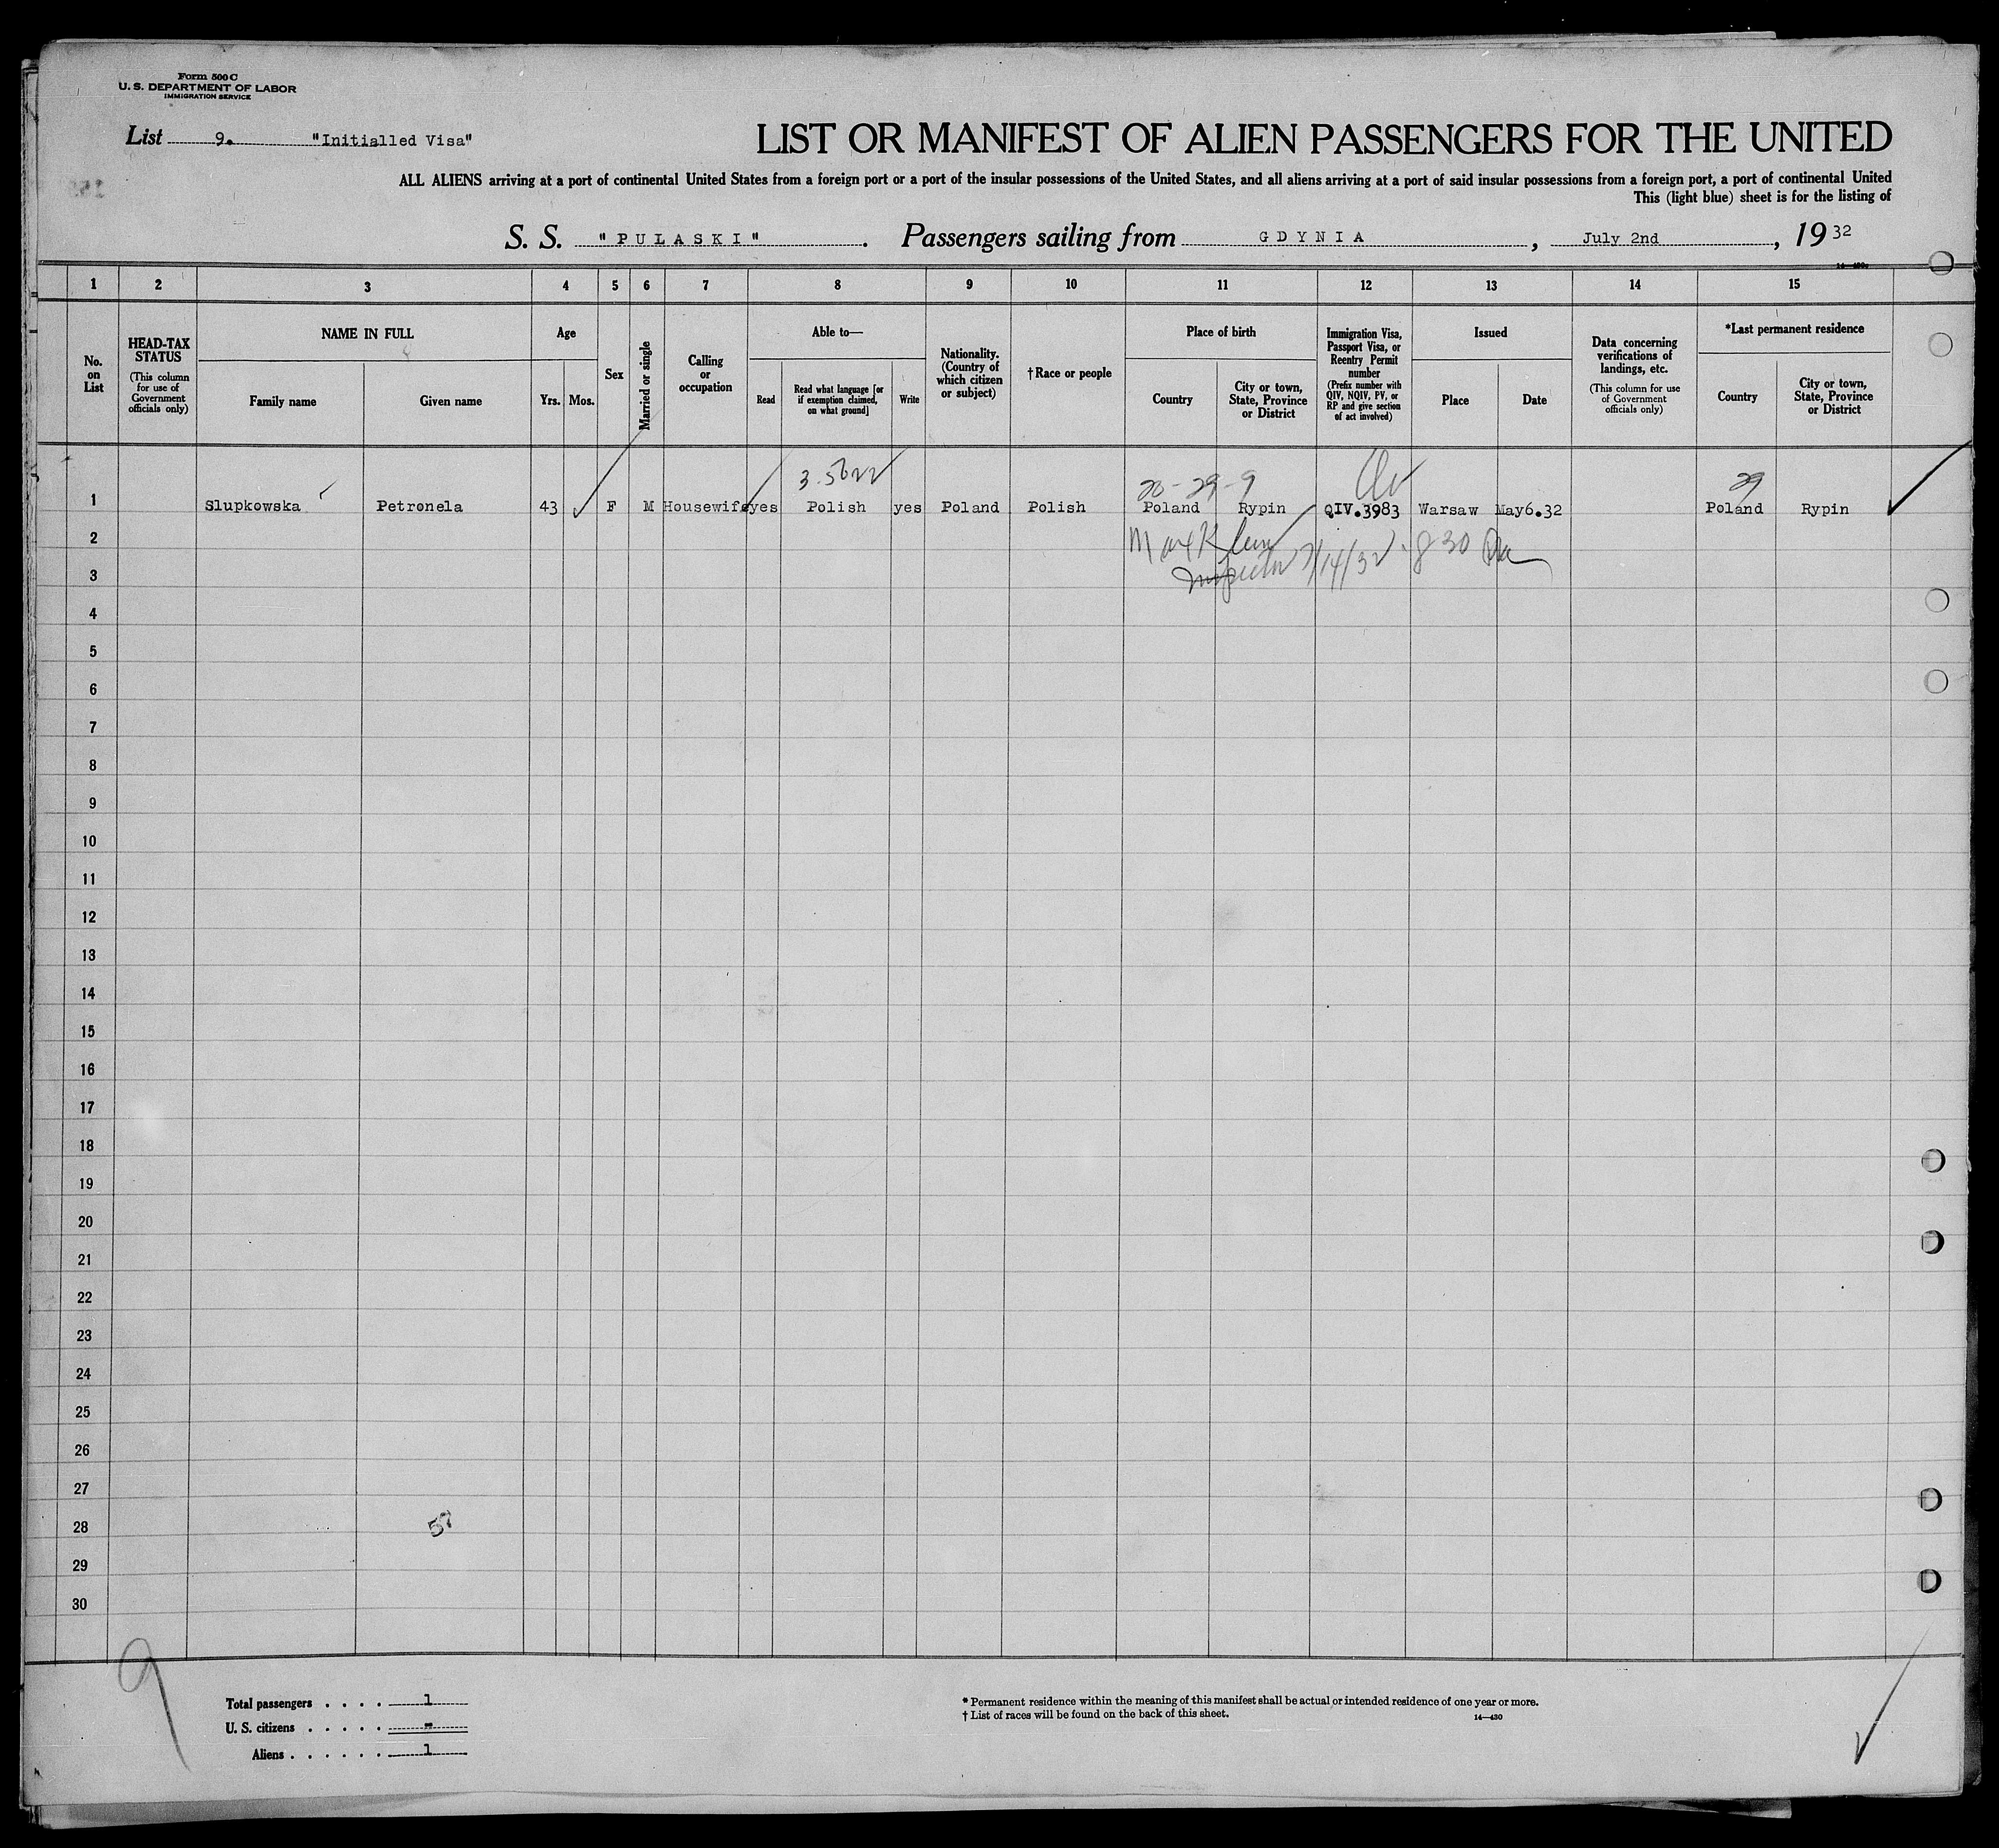 Form 500 C
U. S. DEPARTMENT OF LABOR
IMMIGRATION SERVICE
List 9. "Initialled Visa"
LIST OR MANIFEST OF ALIEN PASSENGERS FOR THE UNITED
ALL ALIENS arriving at a port of continental United States from a foreign port or a port of the insular possessions of the United States, and all aliens arriving at a port of said insular possessions from a foreign port, a port of continental United
This (light blue) sheet is for the listing of
S. S. "PULASKI". Passengers sailing from GDYNIA, July 2nd, 19 32
1 2 3 4 5 6 7 8 9 10 11 12 13 14 15
No. on List
HEAD-TAX STATUS
(This column for use of Government officials only)
NAME IN FULL
Family name
Given name
Age
Yrs. Mos.
Sex
Married or single
Calling or occupation
Able to—
Read
Read what language [or if exemption claimed, on what ground]
Write
Nationality. (Country of which citizen or subject)
†Race or people
Place of birth
Country
City or town, State, Province or District
Immigration Visa, Passport Visa, or Reentry Permit number
(Prefix number with QIV, NQIV, PV, or RP and give section of act involved)
Issued
Place
Date
Data concerning verifications of landings, etc.
(This column for use of Government officials only)
*Last permanent residence
Country
City or town, State, Province or District
20-29-9 29
1 Slupkowska Petronela 43 F M Housewife yes Polish yes Poland Polish Poland Rypin QIV.3983 Warsaw May6.32 Poland Rypin
2
Inspector 7/14/32 8 30
3
4
5
6
7
8
9
10
11
12
13
14
15
16
17
18
19
20
21
22
23
24
25
26
27
28 57
29
30
9
Total passengers . . . . 1
U. S. citizens . . . . . -
Aliens . . . . . . 1
* Permanent residence within the meaning of this manifest shall be actual or intended residence of one year or more.
† List of races will be found on the back of this sheet.
14—430